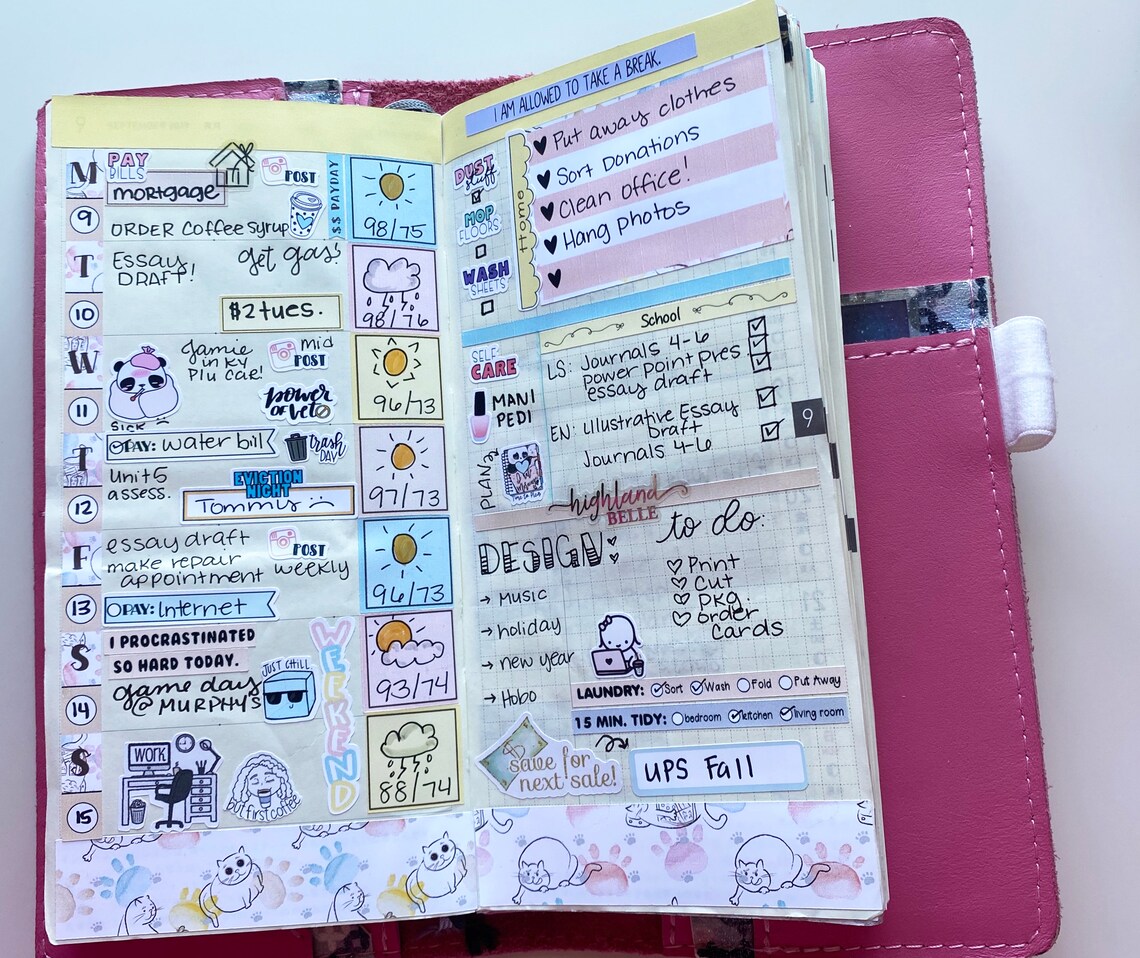 M
PAY
BILLS
mortgage
POST
$$ PAYDAY
98/75
9
ORDER Coffee Syrup
T
ESSAY
DRAFT!
get gas!
98/76
10
$2 tues.
W
Jamie
in KY
Plu Cae!
mid
POST
96/73
11
power
OF VETO
sick
T
PAY: water bill
trash
DAY
Unit 5
assess.
EVICTION
NIGHT
97/73
12
Tommy
F
essay draft
make repair
appointment
POST
weekly
96/73
13
PAY: Internet
S
I PROCRASTINATED
SO HARD TODAY.
game day
@ MURPHY'S
JUST CHILL
WEEKEND
93/74
14
S
WORK
but first coffee
88/74
15
I AM ALLOWED TO TAKE A BREAK.
DUST
stuff
MOP
FLOORS
WASH
SHEETS
Home
Put away clothes
Sort Donations
Clean office!
Hang photos
School
SELF
CARE
MANI
PEDI
PLAN
LS: Journals 4-6
power point pres
essay draft
EN: Illustrative Essay
Draft
Journals 4-6
9
highland
BELLE
DESIGN:
→ Music
→ holiday
→ new year
→ Hobo
to do:
Print
Cut
PKg.
order
cards
LAUNDRY: Sort Wash Fold Put Away
15 MIN. TIDY: bedroom kitchen living room
save for
next sale!
UPS Fall